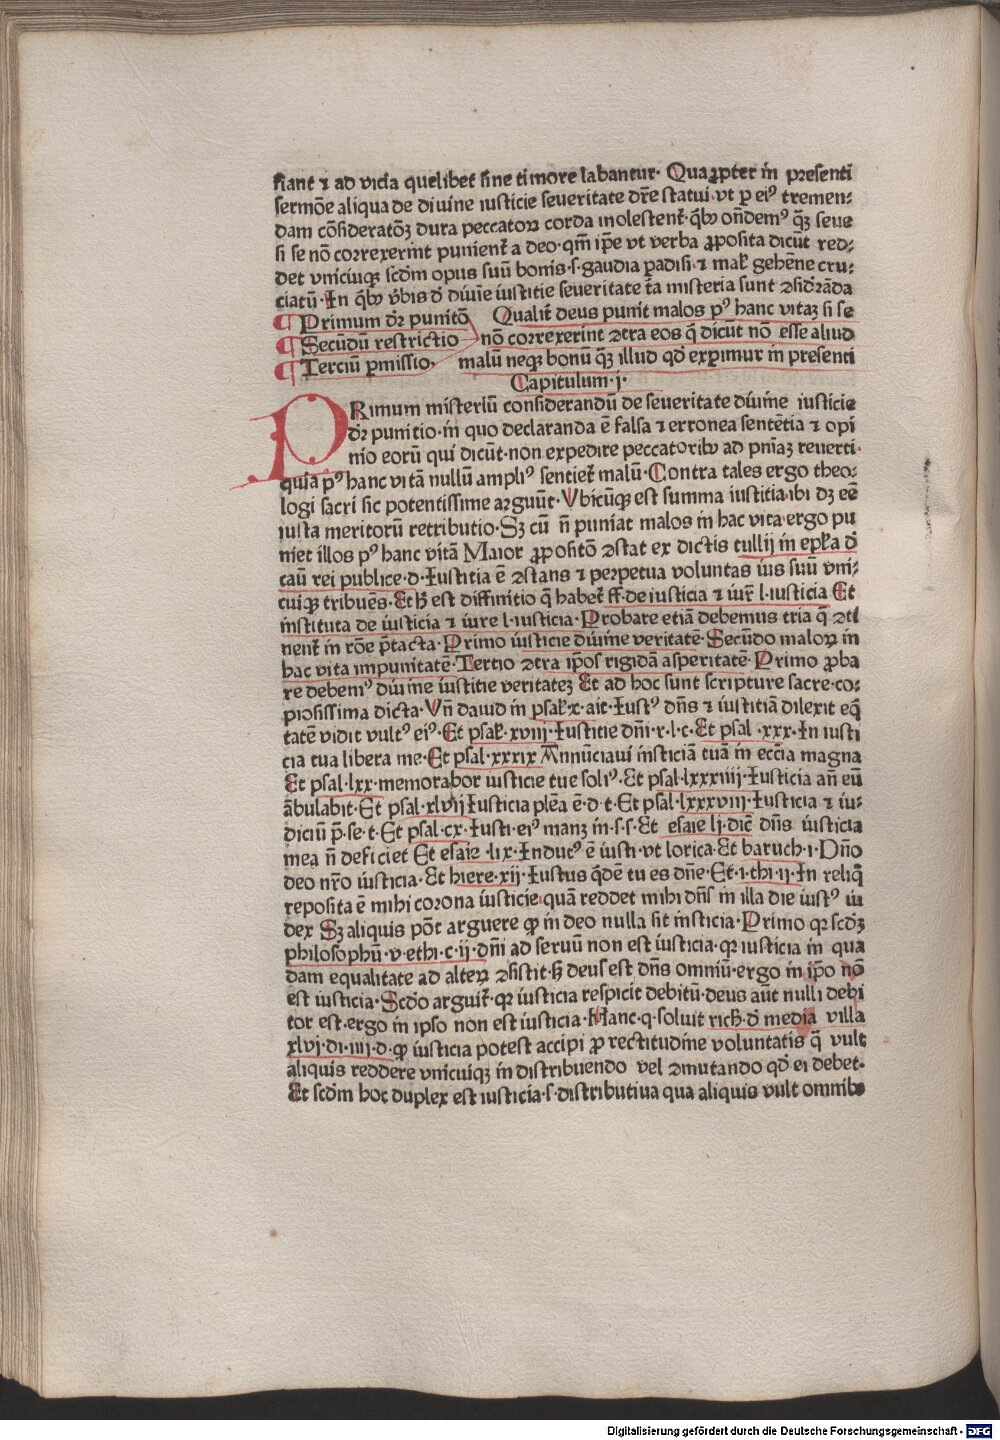 fiant ⁊ ad vicia quelibet sine timore labantur· Quaꝓpter in presenti
sermōe aliqua de diuine iusticie seueritate dr̄e statui·vt ꝑ eiꝰ tremen⸗
dam cōsideratōꝫ dura peccatoꝝ corda molestent̄·qͥbꝰ on̄demꝰ qͣꝫ seue
si se nō correxerint punient̄ a deo·qm̄ ip̄e vt verba ꝓposita dicūt red⸗
det vnicuiqꝫ scd̄m opus suū bonis·s·gaudia ꝑadisi·⁊ mal̄ gehēne cru⸗
ciatū·In qͥbꝰ v̄bis d̄ diuīe iustitie seueritate t̄a misteria sunt ꝯsid̓rāda
¶ Primum dr̄ punitō
¶ Secūdū restrictio
¶ Terciū ꝑmissio·
Qualit̄ deus punit malos pꝰ hanc vitaꝫ si se
nō correxerint ꝯtra eos q̄ dicūt nō esse aliud
malū neqꝫ bonū qͣꝫ illud qd̓ exꝑimur in presenti
Capitulum·j·
PRimum misteriū considerandū de seueritate diuine iusticie
dr̄ punitio·in quo declaranda ē falsa ⁊ erronea sentētia ⁊ opi
nio eorū qui dicūt·non expedire peccatoribꝰ ad pn̄iaꝫ reuerti·
quia pꝰ hanc vitā nullū ampliꝰ sentiet̄ malū·Contra tales ergo theo⸗
logi sacri sic potentissime arguūt·Vbicūqꝫ est summa iustitia·ibi dꝫ eē
iusta meritorū retributio·Sꝫ cū n̄ puniat malos in hac vita·ergo pu
niet illos pꝰ hanc vitā Maior ꝓpositō ꝯstat ex dictis tullij in epl̄a d̄
cau̅ rei publice·d·Iustitia ē ꝯstans ⁊ perpetua voluntas ius suū vni⸗
cuiqꝫ tribuēs·Et h̄ est diffinitio q̄ habet̄ ff·de iusticia ⁊ iur̄ l·iusticia Et
instituta de iusticia ⁊ iure l·iusticia·Probare etiā debemus tria q̄ ꝯti
nent̄ in rōe p̄tacta·Primo iusticie diuine veritatē·Secūdo maloꝝ in
hac vita impunitatē·Tertio ꝯtra ip̄os rigidā asperitatē·Primo ꝓba
re debemꝰ diuine iustitie veritateꝫ Et ad hoc sunt scripture sacre·co⸗
piosissima dicta·Vn̄ dauid in psal̄·x·ait·Iustꝰ dn̄s ⁊ iustitiā dilexit eq̄
tatē vidit vultꝰ eiꝰ·Et psal̄·xviii·Iustitie dn̄i·r·l·c·Et psal·xxx·In iusti
cia tua libera me·Et psal·xxxix Annūciaui insticiā tuā in ecc̄ia magna
Et psal·lxx·memorabor iusticie tue soliꝰ·Et psal·lxxxiiii·Iusticia an̄ eū
ābulabit·Et psal·xlvij Iusticia plēa ē·d·t·Et psal·lxxxviii·Iusticia ⁊ iu⸗
diciū p̄·se·t·Et psal·cx·Iusti·eiꝰ manꝫ in·s·s·Et esaie lj·dic̄ dn̄s iusticia
mea n̄ deficiet Et esaie·lix·Inducꝰ ē iusti·vt lorica·Et baruch·i·Dn̄o
deo nr̄o iusticia·Et hiere·xij·Iustus qͥdē tu es dn̄e·Et·i·thi·ii·In reliq̄
reposita ē mihi corona iusticie·quā reddet mihi dn̄s in illa die iustꝰ iu
dex Sꝫ aliquis pōt arguere ꝙ in deo nulla sit insticia·Primo qꝛ scd̄ꝫ
philosophū·v·ethi·c·ij·dn̄i ad seruū non est iusticia·qꝛ iusticia in qua
dam equalitate ad alterꝝ ꝯsistit·sꝫ deus est dn̄s omniū·ergo in ip̄o nō
est iusticia·Scd̄o arguit̄·qꝛ iusticia respicit debitū·deus aūt nulli debi
tor est·ergo in ipso non est iusticia·Hanc·q·soluit rich̄·d̄ media villa
xlvj·di·iiij·d·ꝙ iusticia potest accipi ꝓ rectitudine voluntatis q̄ vult
aliquis reddere vnicuiqꝫ in distribuendo vel ꝯmutando qd̓ ei debet·
Et scd̄m hoc duplex est iusticia·s·distributiua qua aliquis vult omnibꝰ
Digitalisierung gefördert durch die Deutsche Forschungsgemeinschaft - DFG